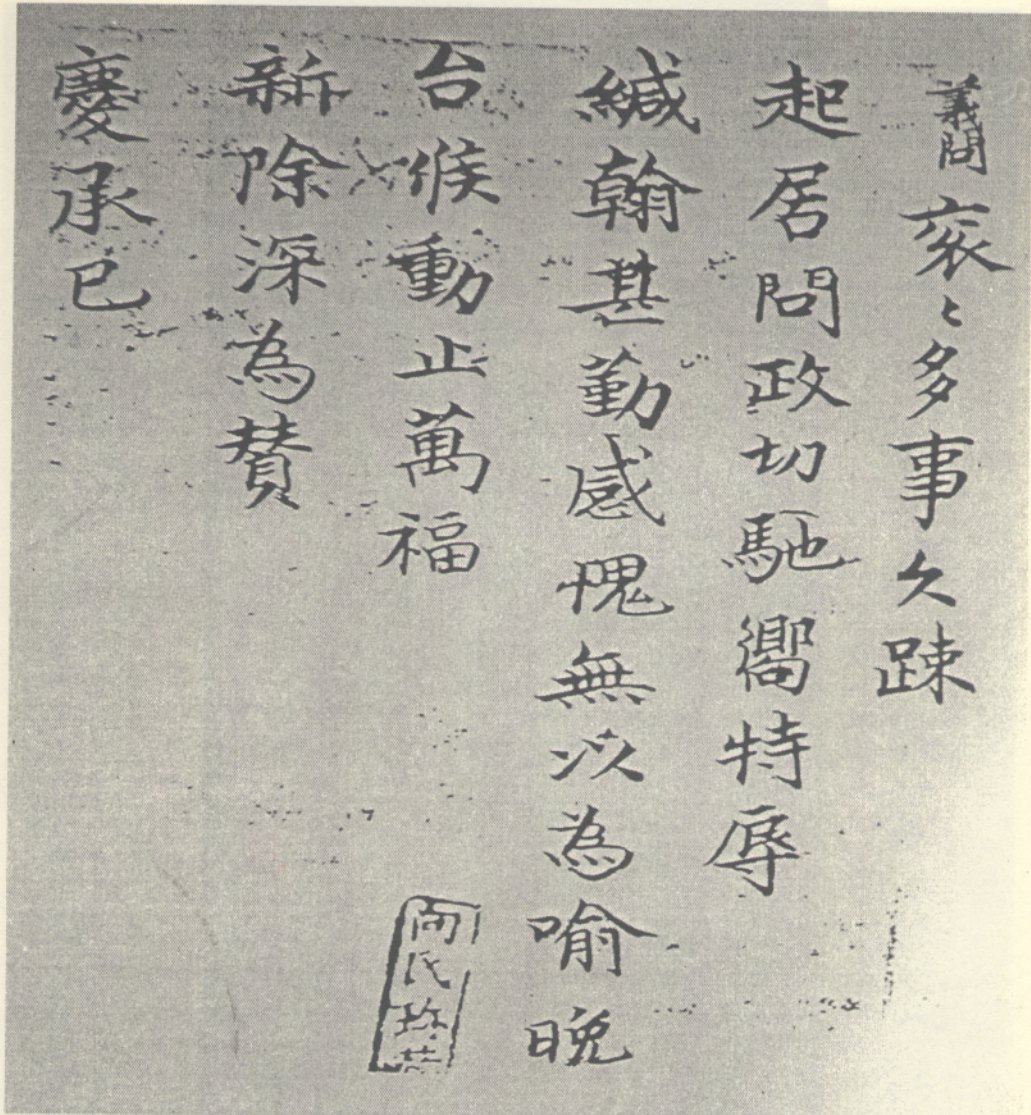 義問衮々多事久踈
起居問政切馳嚮特辱
緘翰甚勤感愧無以為喻晚
台候動止萬福
新除深為賛
慶承已
向氏珍